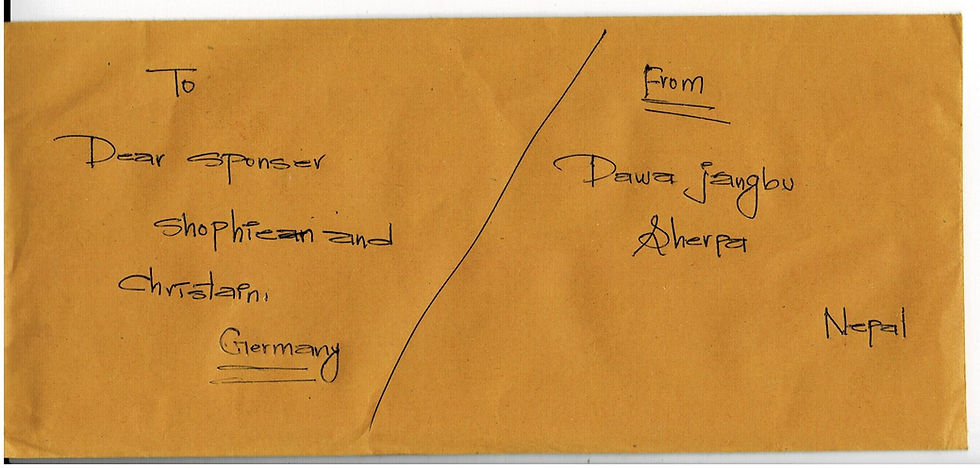 To
Dear sponser
shophiean and
Christain,
Germany
From
Dawa jangbu
Sherpa
Nepal